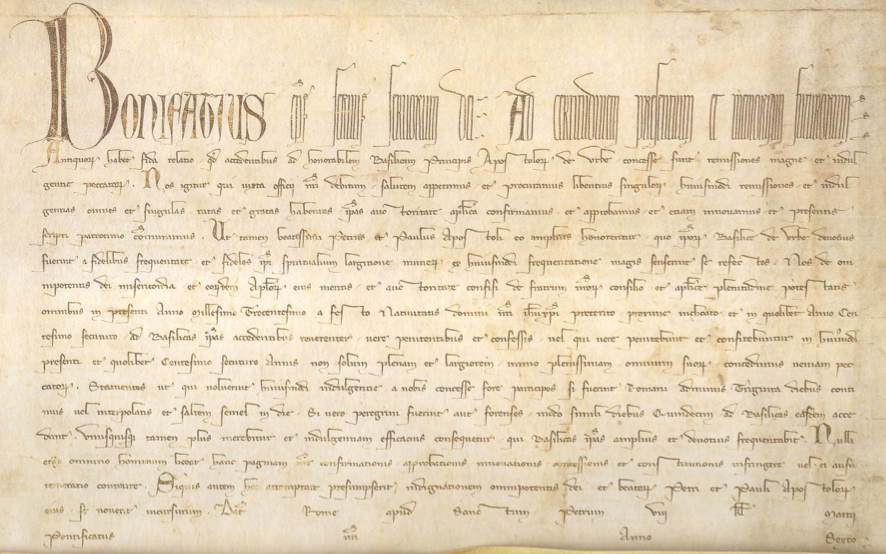 Bonifatius ep̄s seruus seruorum dei Ad certitudinem presentium et memoriam futurorum
Antiquorꝝ habet fida relatio qđ accedentibus ad honorabilem Basilicam Principis Apostolorꝝ de Vrbe concesse sunt remissiones magne et indul
gentie peccatorꝝ. Nos igitur qui iuxta officij nr̄i debitum salutem appetimus et procuramus libentius singulorꝝ huiusmodi remissiones et indul
gentias omnes et singulas ratas et gratas habentes ip̄as auctoritate aplica confirmamus et approbamus et etiam innouamus et presentis
scripti patrocinio cōmunimus. Ut tamen beatissimi Petrus et Paulus Apostoli eo amplius honorentur quo ip̄orꝝ Basilice de Vrbe deuotius
fuerint a fidelibus frequentate et fideles ip̄i spiritualium largitione munerꝝ ex huiusmodi frequentatione magis senserint se refectos. Nos de om
nipotentis dei misericordia et eorꝝdem Aplorꝝ eius meritis et auctoritate confisi de fratrum nr̄orꝝ consilio et aplice plenitudine potestatis
omnibus in presenti Anno Millesimo Trecentesimo a festo Natiuitatis domini nr̄i ih̄u xp̄i preterito proxime inchoato et in quolibet Anno Cen
tesimo secuturo ad Basilicas ip̄as accedentibus reuerenter uere penitentibus et confessis uel qui uere penitebunt et confitebuntur in hui᾽modi
presenti et quolibet Centesimo secuturo Annis non solum plenam et largiorem immo plenissimam omnium suorꝝ concedimus ueniam pec
catorꝝ. Statuentes ut qui uoluerint huiusmodi indulgentie a nobis concesse fore participes si fuerint Romani ad minus Triginta diebus conti
nuis uel interpolatis et saltem semel in die. Si uero peregrini fuerint aut forenses modo simili diebus Quindecim ad Basilicas easdem acce
dant. Vnusquisqꝫ tamen plus merebitur et indulgentiam efficacius consequetur qui Basilicas ip̄as amplius et deuotius frequentabit. Nulli
ergo omnino hominum liceat hanc paginam nr̄e confirmationis approbationis innouationis concessionis et constitutionis infringere uel ei ausu
temerario contraire. Siquis autem hoc attemptare presumpserit indignationem omnipotentis dei et beatorꝝ Petri et Pauli Apostolorꝝ
eius se nouerit incursurum. Dat̄ Rome apud Sanctum Petrum viij kl̄ Martij
Pontificatus nr̄i Anno Sexto